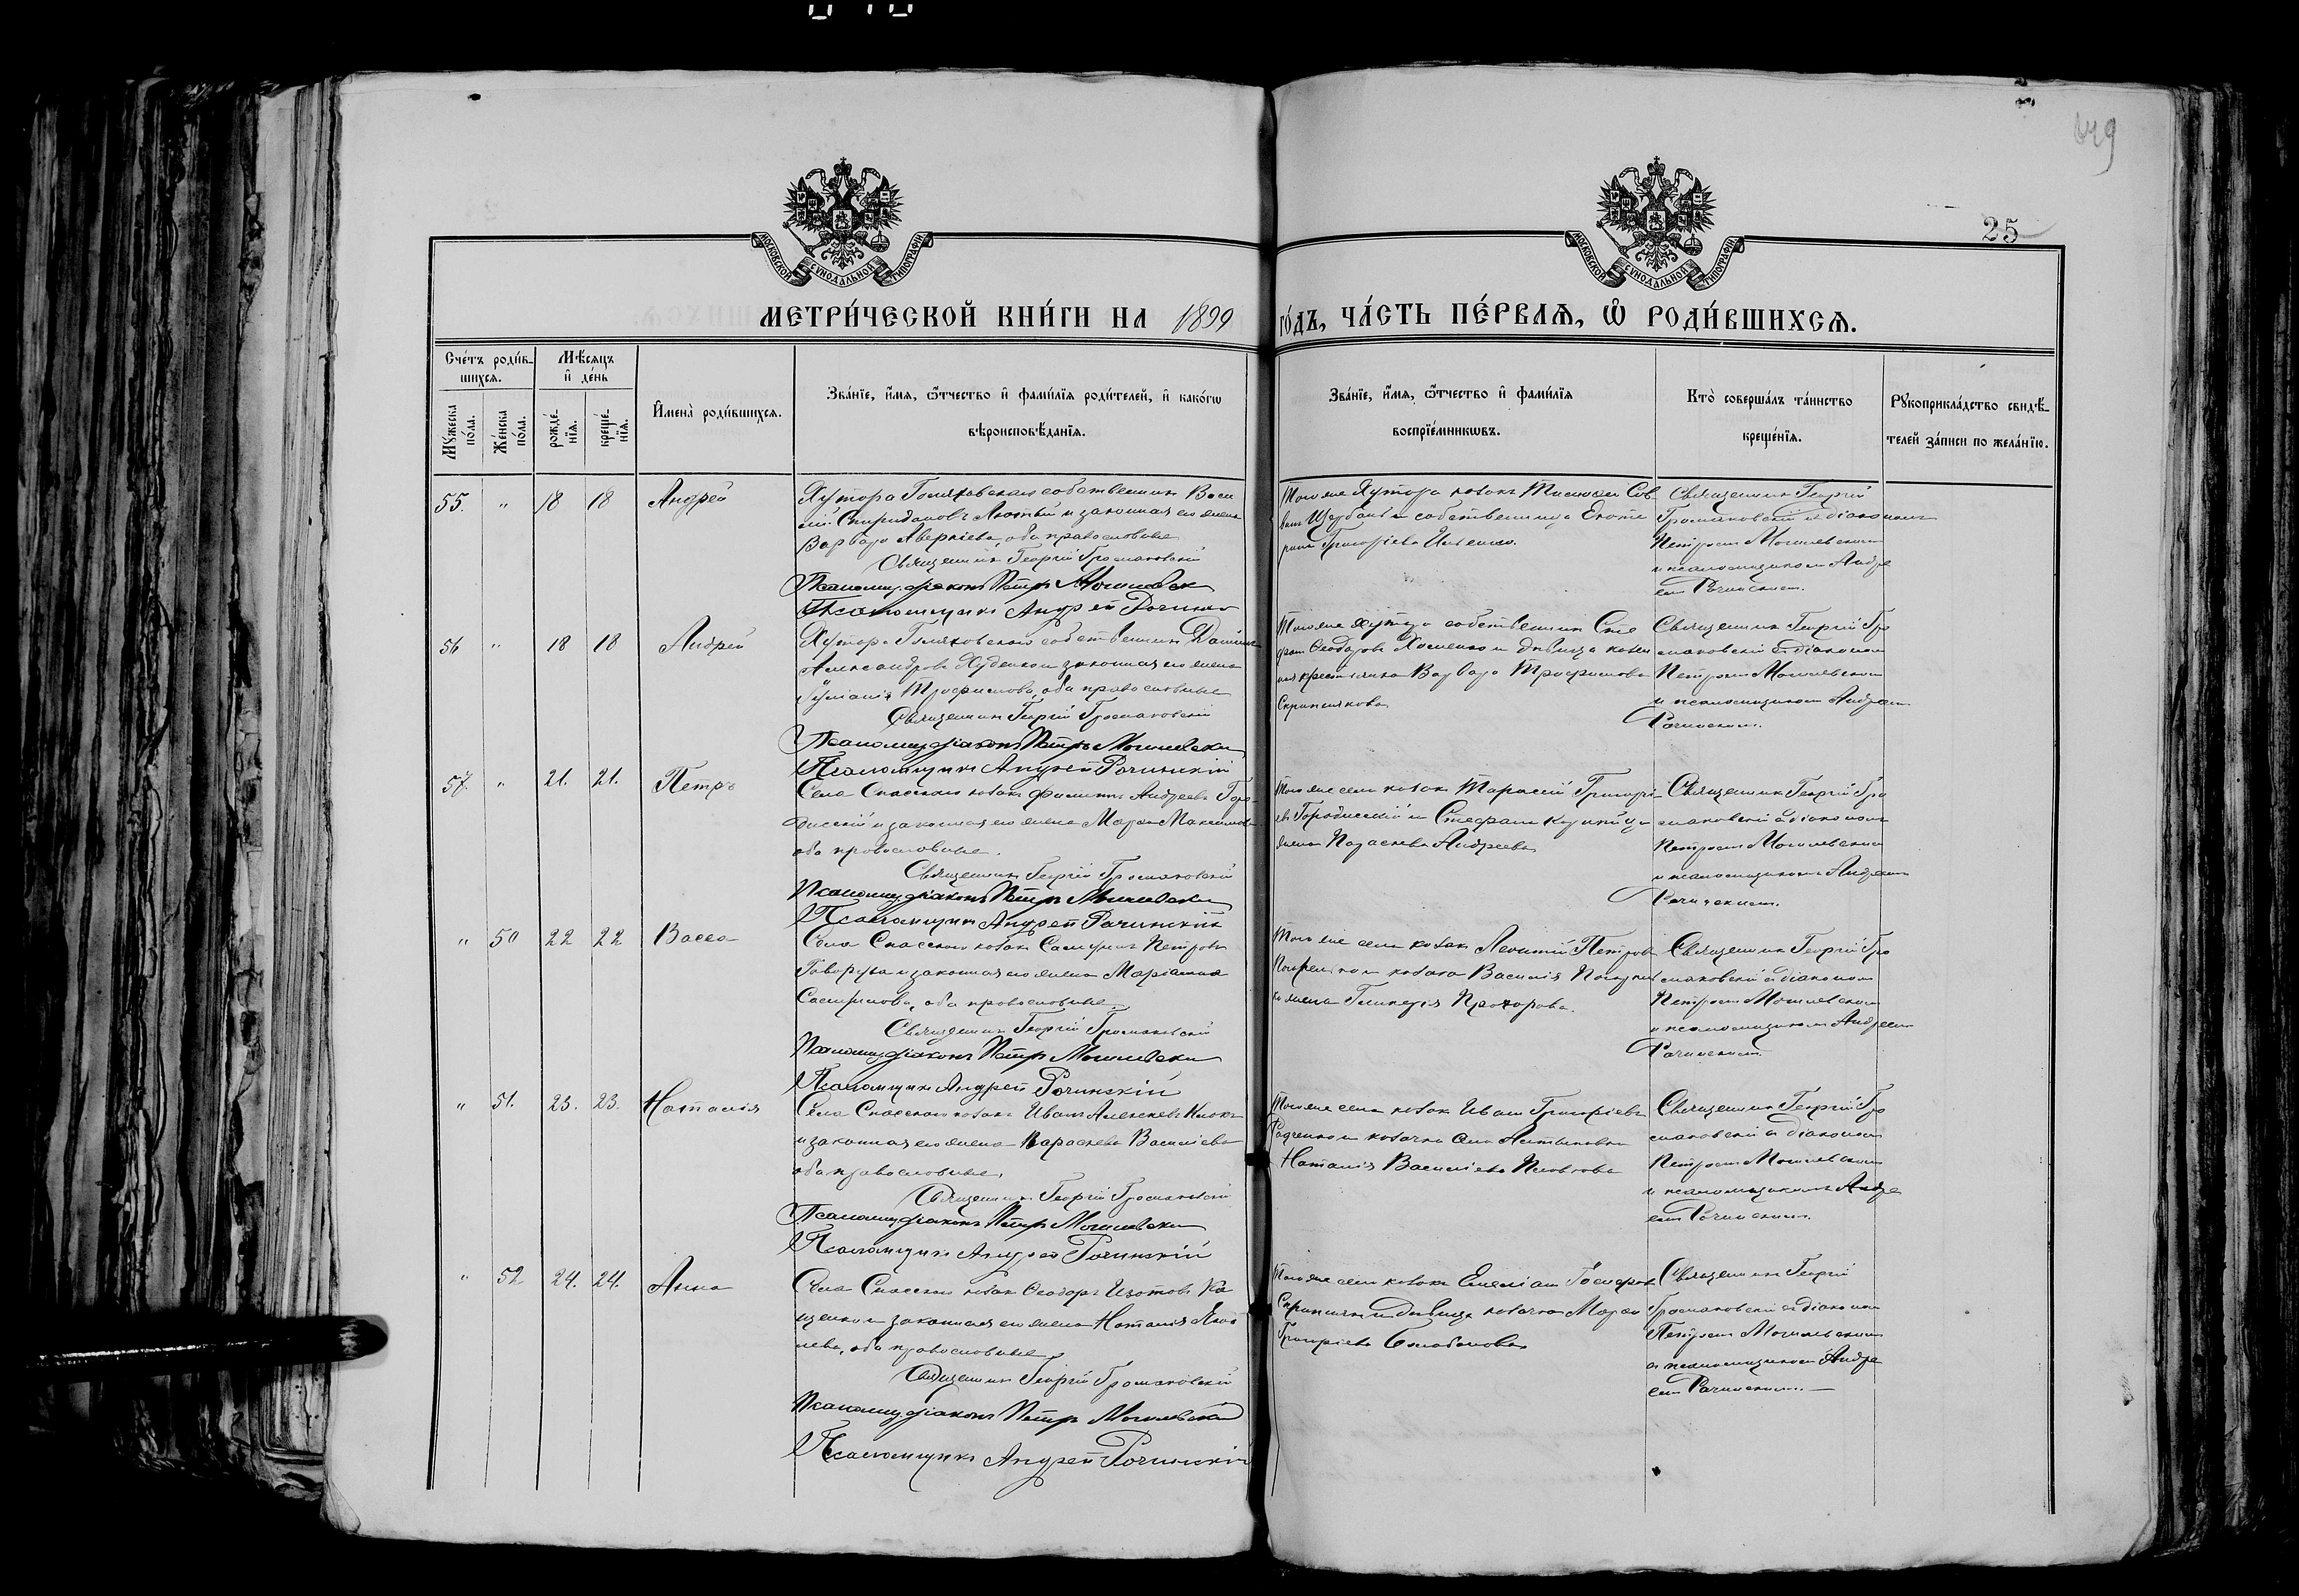 649
25
МОСКОВСКОЙ СѴНОДАЛЬНОЙ ТИПОГРАФІИ
МОСКОВСКОЙ СѴНОДАЛЬНОЙ ТИПОГРАФІИ
МЕТРИ́ЧЕСКОЙ КНИ́ГИ НА 1899 ГО́ДЪ, ЧА́СТЬ ПЕ́РВАѦ, Ѡ҆ РОДИ́ВШИХСѦ.
Сче́тъ роди́в-
шихсѧ.
Мѣ́сѧцъ
и҆ де́нь
Мꙋ́жеска
по́ла.
Же́нска
по́ла.
рожде́-
нїѧ.
креще́-
нїѧ.
И҆мена̀ роди́вшихсѧ.
Зва́нїе, и҆́мѧ, ѻ҆́тчество и҆ фами́лїѧ роди́телей, и҆ како́гѡ
вѣроисповѣ́данїѧ.
Зва́нїе, и҆́мѧ, ѻ҆́тчество и҆ фами́лїѧ
воспрїе́мникѡвъ.
Кто̀ соверша́лъ та́инство
креще́нїѧ.
Рꙋкоприкла́дство свидѣ́-
телей за́писи по жела́нїю.
55. " 18 18 Андрей
собственникъ Васи
лій Спиридоновъ Лютый и законная его жена
Варвара Аверкіева, оба православные
Священникъ Георгій Громаковскій
діаконъ Петръ Могилевскі
Псаломщикъ Андрей Рачинскі
Того же Хутора козакъ
собственница Екате
рина Григоріева
Священникъ Георгій
Громаковскій съ діакономъ
Петромъ Могилевскимъ
и псаломщикомъ Андре
емъ Рачинскимъ.
56 " 18 18 Андрей
собственникъ Даніилъ
Александровъ Худенко и законная его жена
Іуліанія Трофимова, оба православные
Священникъ Георгій Громаковскій
діаконъ Петръ Могилевскі
Псаломщикъ Андрей Рачинскій
Того же хутора собственникъ Сте
фанъ Ѳеодоровъ Хоменко и дѣвица
крестьянка Варвара Трофимова
Скрипникова
Священникъ Георгій Гро
маковскій съ діакономъ
Петромъ Могилевскимъ
и псаломщикомъ Андреемъ
Рачинскимъ.
57. " 21. 21. Петръ
Села Спасского козакъ Филиппъ Андреевъ Горо
дисскій и законная его жена Марѳа Максимова
оба православные.
Священникъ Георгій Громаковскій
діаконъ Петръ Могилевскі
Псаломщикъ Андрей Рачинскій
Того же села козакъ Тарасій Григорі
евъ Городисскій и Стефана
жена Параскева Андреева
Священникъ Георгій Гро
маковскій съ діакономъ
Петромъ Могилевскимъ
и псаломщикомъ Андреемъ
Рачинскимъ.
" 50 22 22 Васса
Села Спасского козакъ Самуилъ Петровъ
Говоруха и законная его жена Маріанна
оба православные
Священникъ Георгій Громаковскій
діаконъ Петръ Могилевскі
Псаломщикъ Андрей Рачинскій
Того же села козакъ Леонтій Петровъ
козака Василія
жена Гликерія Прохорова.
Священникъ Георгій Гро
маковскій съ діакономъ
Петромъ Могилевскимъ
и псаломщикомъ Андреемъ
Рачинскимъ
" 51. 23. 23. Наталія
Села Спасского козакъ Иванъ Алексеевъ
и законная его жена Параскева Василіева
оба православные
Священникъ Георгій Громаковскій
діаконъ Петръ Могилевскі
Псаломщикъ Андрей Рачинскій
Того же села козакъ Иванъ Григоріевъ
Радченко и козачка села
Наталія Василіева
Священникъ Георгій Гро
маковскій съ діакономъ
Петромъ Могилевскимъ
и псаломщикомъ Андре
емъ Рачинскимъ.
" 52 24. 24. Анна
Села Спасского козакъ Ѳеодоръ Изотовъ Ка
щенко и законная его жена Наталія Яков
лева, оба православные
Священникъ Георгій Громаковскій
діаконъ Петръ Могилевскій
Псаломщикъ Андрей Рачинскій
Того же села козакъ Емеліанъ
дѣвица козачка Марѳа
Григоріева
Священникъ Георгій
Громаковскій съ діакономъ
Петромъ Могилевскимъ
и псаломщикомъ Андре
емъ Рачинскимъ.